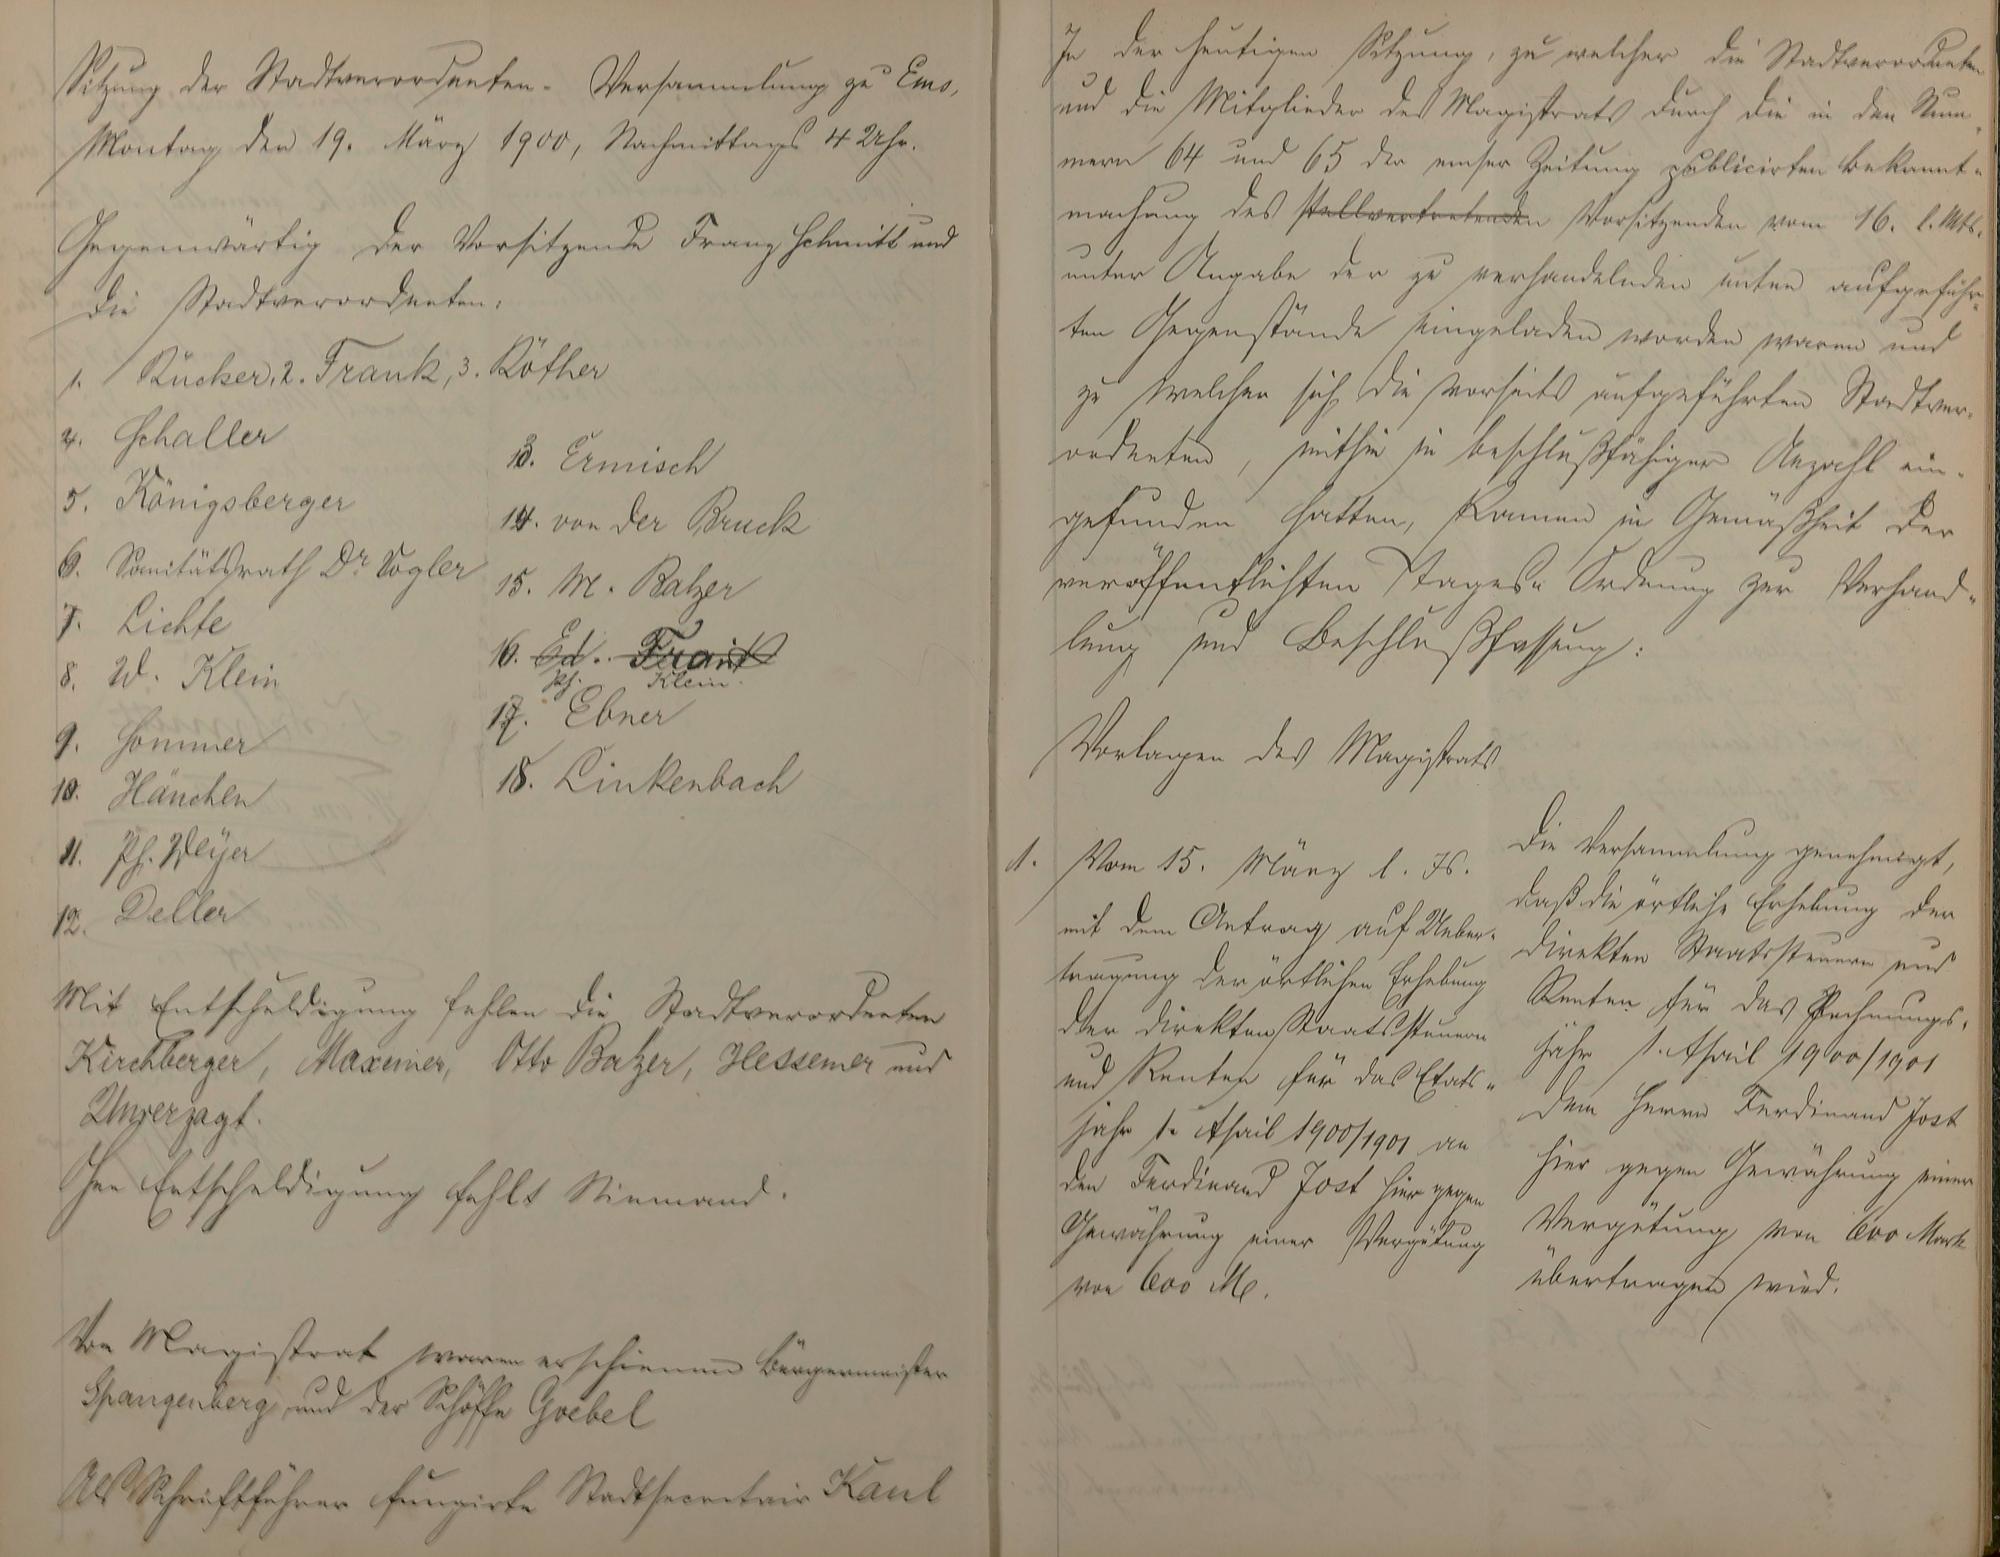 Sitzung der Stadtverordneten-Versammlung zu Ems,
Montag den 19. März 1900, Nachmittags 4 Uhr.
Gegenwärtig der Vorsitzende Franz Schmitt und
die Stadtverordneten:
1. Rücker, 2. Frank, 3. Röther
4. Schaller
5. Königsberger
6. Sanitätsrath Dr Vogler
7. Lichte
8. W. Klein
9. Sommer
10. Hänchen
11. Ph. Weyer
12. Deller
13. Ermisch
14. von der Bruck
15. M. Balzer
16. Ed. Frank
Ph. Klein
17. Ebner
18. Linkenbach
Mit Entschuldigung fehlen die Stadtverordneten
Kirchberger, Maxeiner, Otto Balzer, Hessemer und
Unverzagt.
Ohne Entschuldigung fehlt Niemand.
Vom Magistrat waren erschienen Bürgermeister
Spangenberg und der Schöffe Goebel
Als Schriftführer fungirte Stadtsecretair Kaul
In der heutigen Sitzung, zu welcher die Stadtverordneten
und die Mitglieder des Magistrats durch die in den Num-
mern 64 und 65 der emser Zeitung publicirten Bekannt-
machung des stellvertretenden Vorsitzenden vom 16. l. Mts.
unter Angabe der zu verhandelnden unten aufgeführ-
ten Gegenstände eingeladen worden waren und
zu welcher sich die vorseits aufgeführten Stadtver-
ordneten, mithin in beschlußfähiger Anzahl ein-
gefunden hatten, kamen in Gemäßheit der
veröffentlichten Tages-Ordnung zur Verhand-
lung und Beschlußfassung:
Vorlagen des Magistrats
1. Vom 15. März l. Js.
mit dem Antrag auf Ueber-
tragung der örtlichen Erhebung
der direkten Staatssteuern
und Renten für das Etats-
jahr 1. April 1900/1901 an
den Ferdinand Jost hier gegen
Gewährung einer Vergütung
von 600 M.
Die Versammlung genehmigt,
daß die örtliche Erhebung der
direkten Staatssteuern und
Renten für das Rechnungs-
jahr 1. April 1900/1901
dem Herrn Ferdinand Jost
hier gegen Gewährung einer
Vergütung von 600 Mark
übertragen wird.